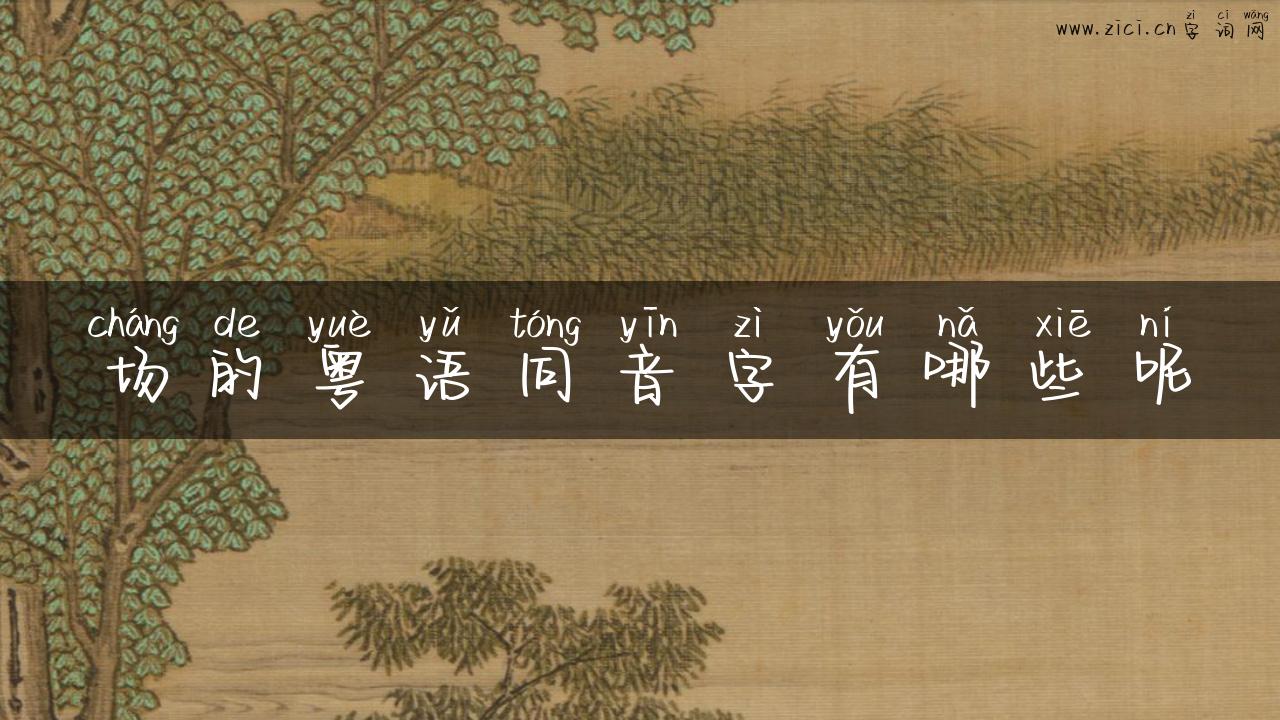 zì cí wǎng
www.zici.cn字词网
cháng de yuè yǔ tóng yīn zì yǒu nǎ xiē ní
场的粤语同音字有哪些呢